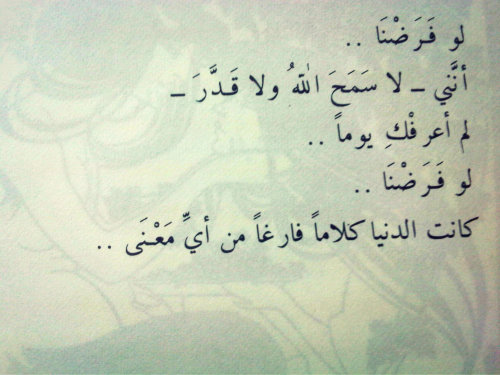 لو فَرَضْنَا ..
أنَّني ــ لا سَمَحَ اللّٰهُ ولا قَدَّرَ ــ
لم أعرفْكِ يوماً ..
لو فَرَضْنَا ..
كانت الدنيا كلاماً فارغاً من أيِّ مَعْنَى ..